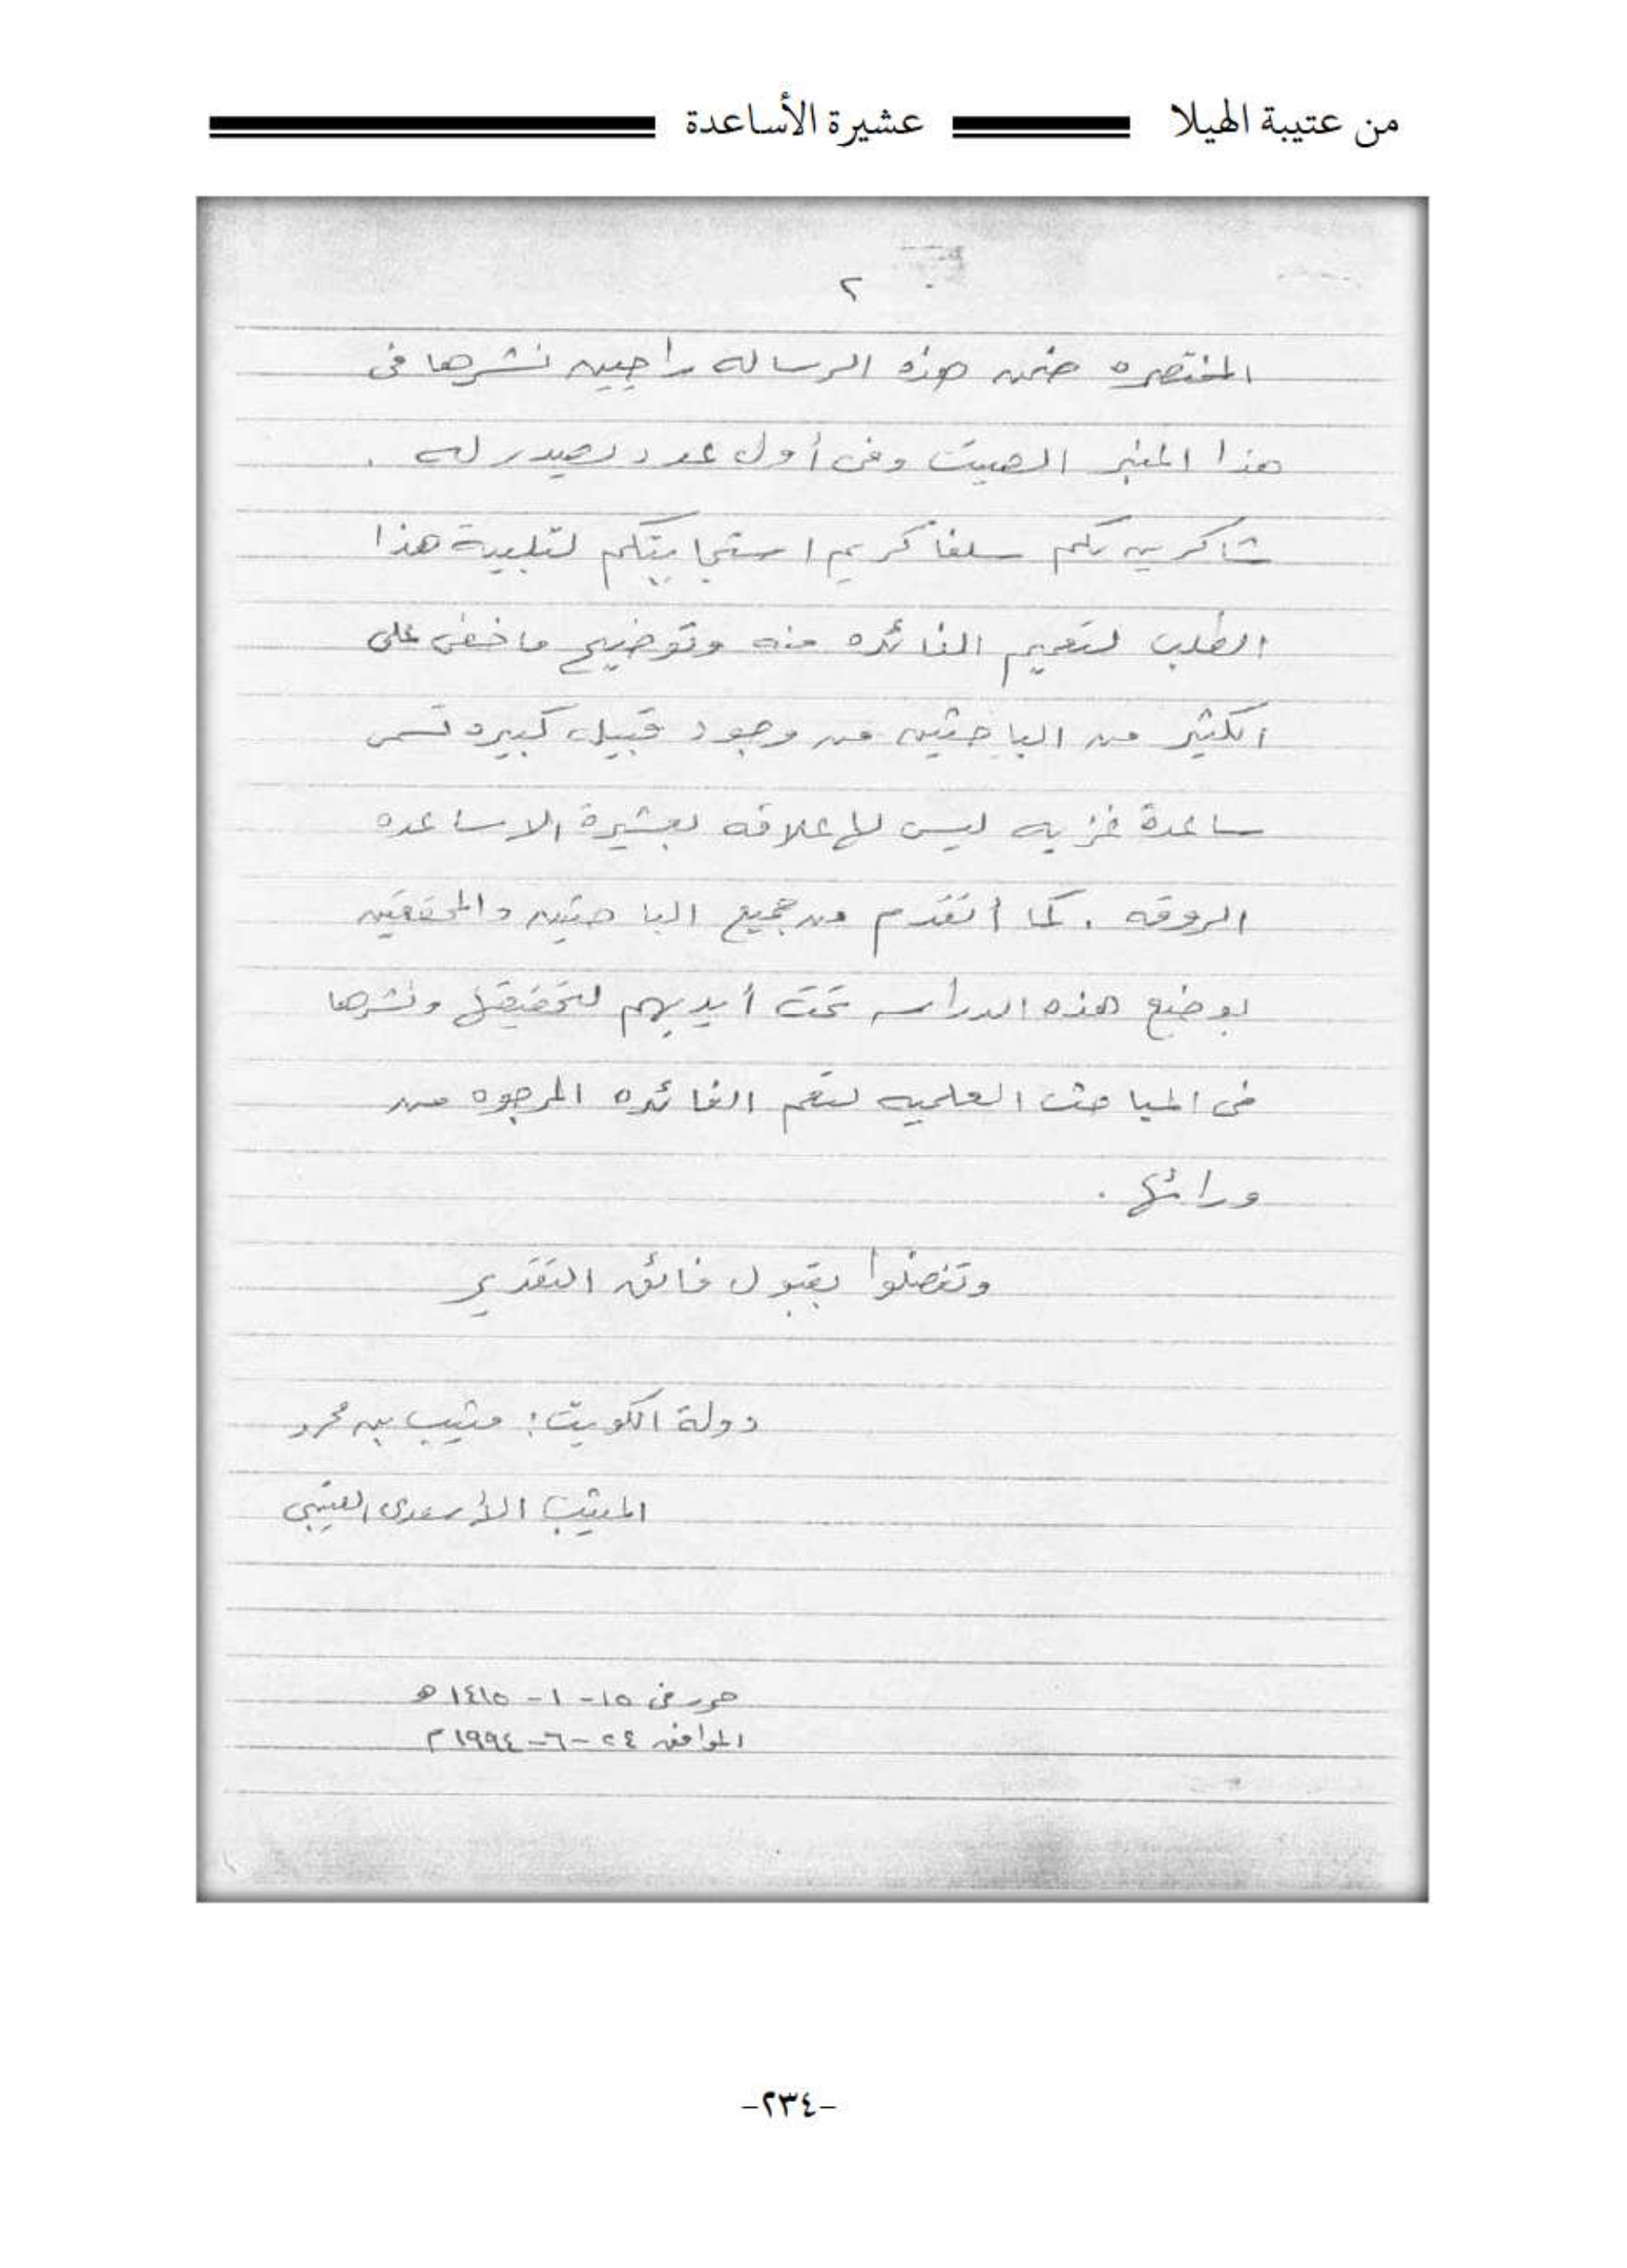 من عتيبة الهيلا عشيرة الأساعدة
٢
المختصره ضمن هذه الرساله راجيين نشرها فى
هذا المنبر الصيت وفى أول عدد يصدر له .
شاكرين لكم سلفا كريم استجابتكم لتلبية هذا
الطلب لتعميم الفائده منه وتوضيح ما خفى على
الكثير من الباحثين من وجود قبيله كبيره تسمى
ساعدة غزيه ليس لها علاقه بعشيرة الاساعده
الروقه . كما أتقدم من جميع الباحثين والمحققين
بوضع هذه الدراسه تحت أيديهم لتحقيقها ونشرها
فى المباحث العلميه لتعم الفائده المرجوه من
ورائها .
وتفضلوا بقبول فائق التقدير
دولة الكويت : مثيب بن محمد
المثيب الأسعدى العتيبي
حرر فى ١٥ - ١ - ١٤١٥ هـ
الموافق ٢٤ - ٦ - ١٩٩٤ م
-٢٣٤-